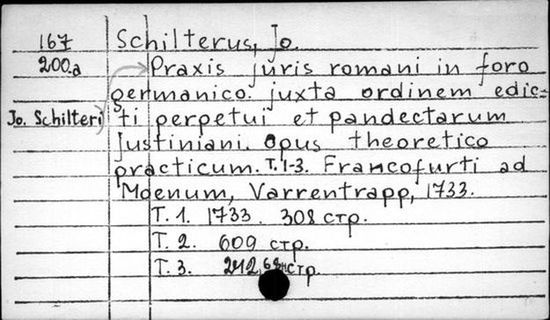 167 Schilterus, Jo.
200.a Praxis juris romani in foro
germanico juxta ordinem edic=
Jo. Schilteri ti perpetui et pandectarum
Justiniani. Opus theoretico
practicum. T. 1-3. Francofurti ad
Moenum, Varrentrapp, 1733.
T. 1. 1733. 308 стр.
T. 2. 609 стр.
T. 3. 242, стр.